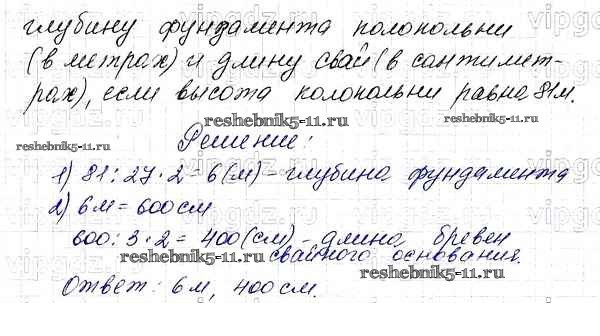 глубину фундамента колокольни
(в метрах) и длину свай (в сантимет-
рах), если высота колокольни равна 81м.
reshebnik5-11.ru
Решение:
reshebnik5-11.ru
1) 81:27·2=6(м) - глубина фундамента
2) 6м = 600см
600:3·2=400(см) - длина бревен
свайного основания.
reshebnik5-11.ru
reshebnik5-11.ru
Ответ: 6м, 400см.